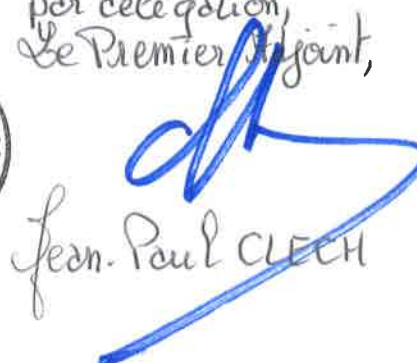 par délégation,
Le Premier Adjoint,
Jean-Paul CLECH